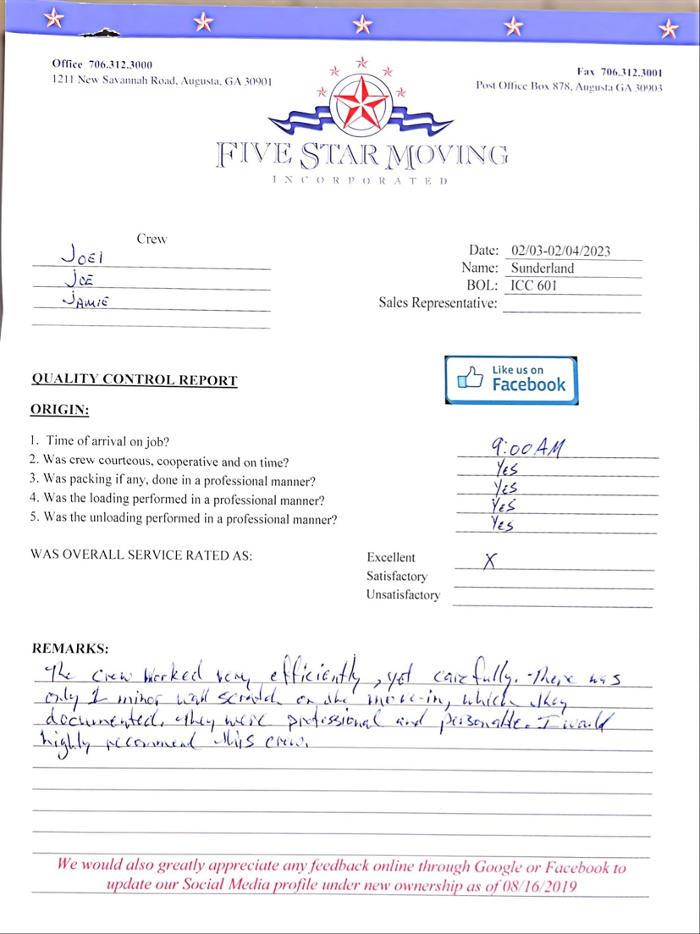 Office 706.312.3000
1211 New Savannah Road, Augusta, GA 30901
Fax 706.312.3001
Post Office Box 878, Augusta GA 30903
FIVE STAR MOVING
INCORPORATED
Crew
JOEl
JOE
JAMIE
Date: 02/03-02/04/2023
Name: Sunderland
BOL: ICC 601
Sales Representative:
Like us on
Facebook
QUALITY CONTROL REPORT
ORIGIN:
1. Time of arrival on job? 9:00AM
2. Was crew courteous, cooperative and on time? YES
3. Was packing if any, done in a professional manner? YES
4. Was the loading performed in a professional manner? YES
5. Was the unloading performed in a professional manner? YES
WAS OVERALL SERVICE RATED AS: Excellent X
Satisfactory
Unsatisfactory
REMARKS:
The crew worked very efficiently, yet carefully. There was
only 1 minor wall scratch on the move-in, which they
documented. They were professional and personable. I would
highly recommend this crew.
We would also greatly appreciate any feedback online through Google or Facebook to
update our Social Media profile under new ownership as of 08/16/2019